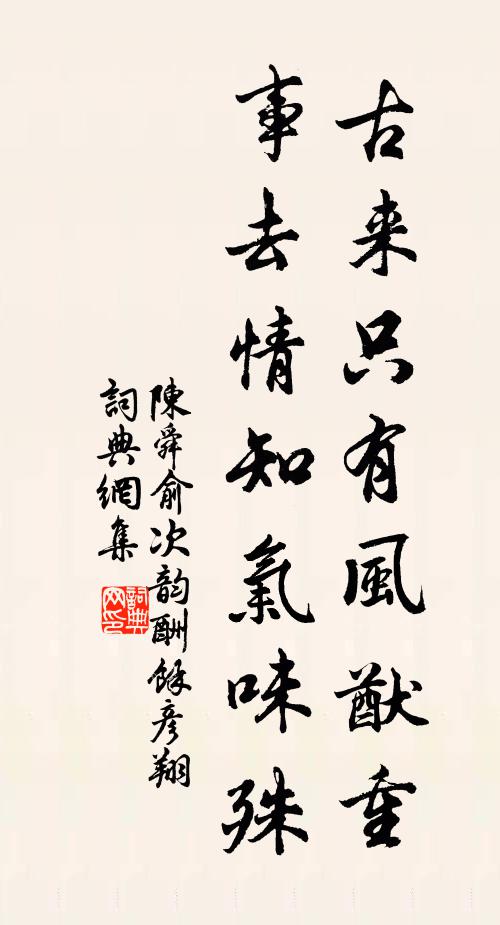 古来只有風猷重
事去情知氣味殊
陳舜俞次韵酬餘彦翔
詞典網集
詞典
网印